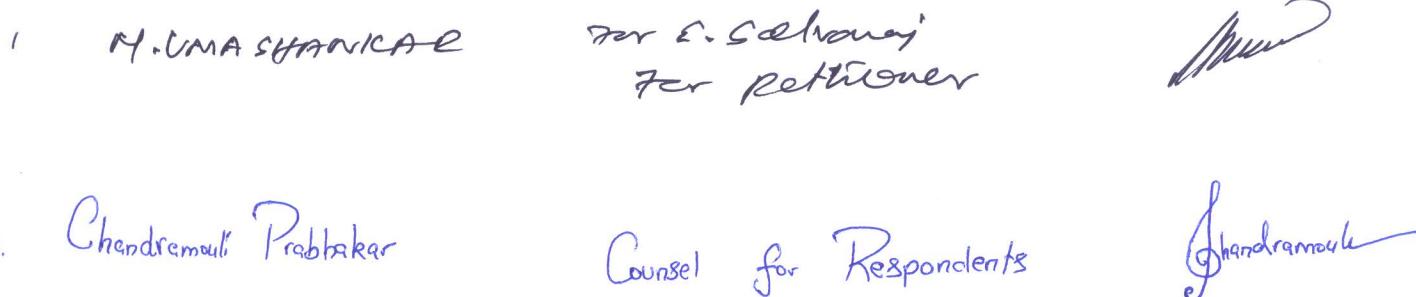 1 M. UMA SHANKAR for E. Selvaraj
For Petitioner
Chandramouli Prabhakar Counsel for Respondents Chandramouli